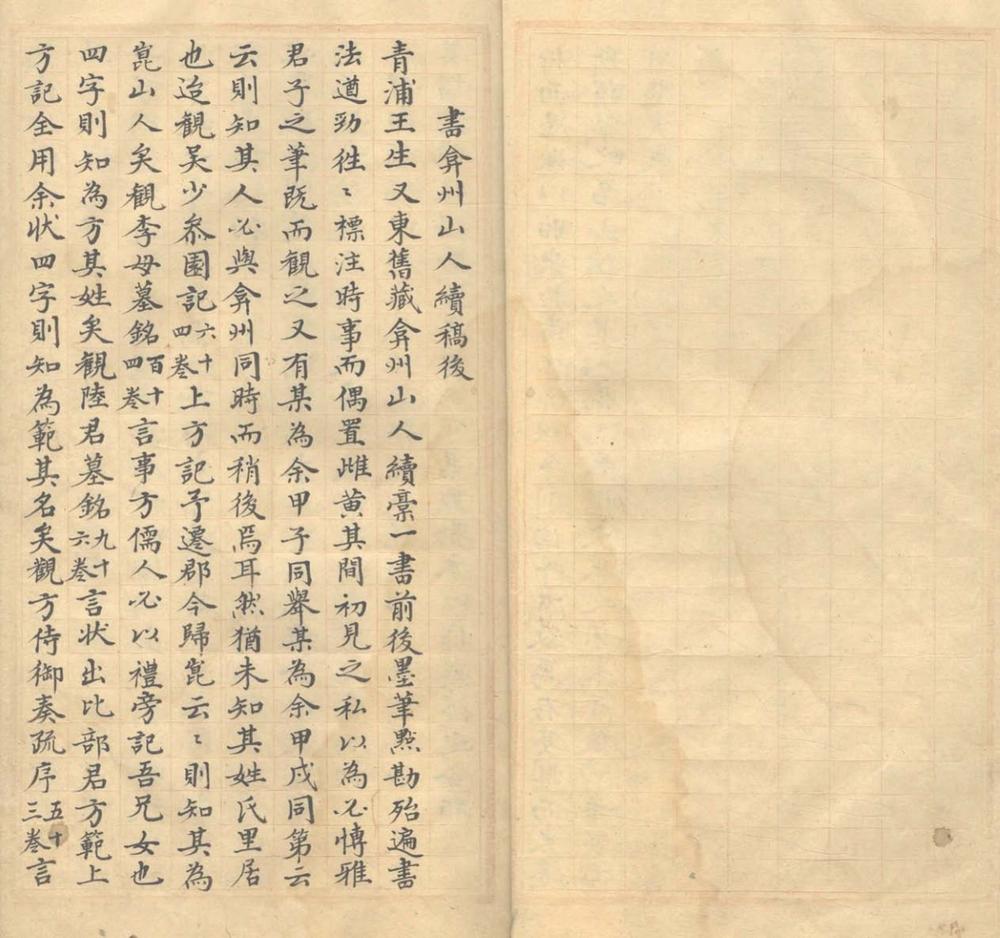 書弇州山人續稿後
青浦王生又東舊藏弇州山人續稾一書前後墨筆㸃勘殆遍書
法遒勁徃〻標注時事而偶置雌黄其間初見之私以為必慱雅
君子之筆既而觀之又有某為余甲子同舉某為余甲戌同第云
云則知其人必與弇州同時而稍後焉耳然猶未知其姓氏里居
也迨觀吴少叅園記六十四卷上方記予遷郡今歸崑云〻則知其為
崑山人矣觀李母墓銘百十四卷言事方儒人必以禮旁記吾兄女也
四字則知為方其姓矣觀陸君墓銘九十六卷言状出比部君方範上
方記全用余状四字則知為範其名矣觀方侍御奏疏序五十三卷言